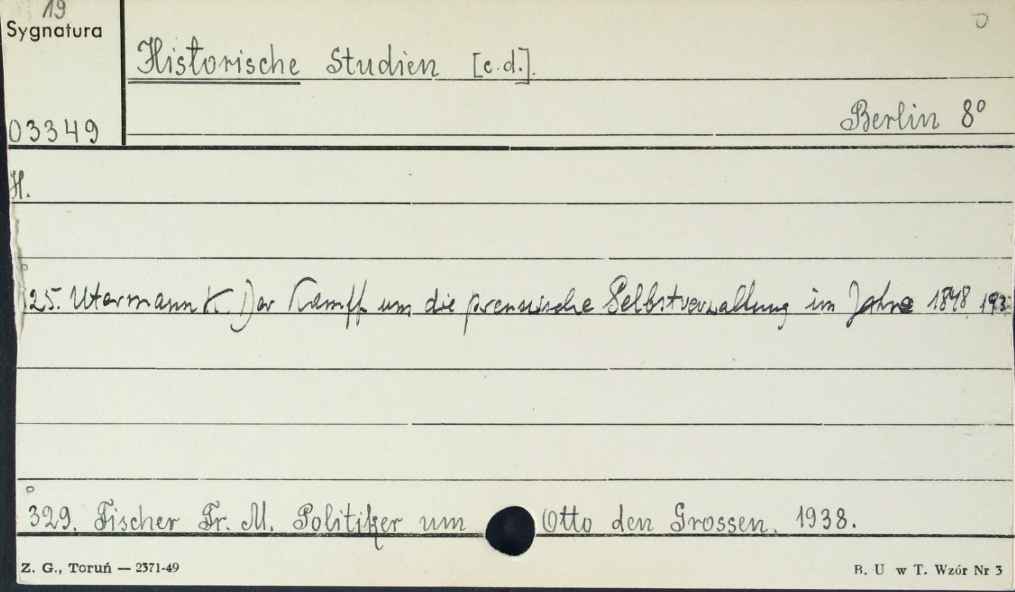 19
Sygnatura
Historische Studien [c.d.].
03349
Berlin 8°
H.
325. Utermann K. Der Kampff um die preussische Selbstverwaltung im Jahre 1848. 193
329. Fischer Fr. M. Politiker um Otto den Grossen. 1938.
Z. G., Toruń — 2371-49
B. U w T. Wzór Nr 3